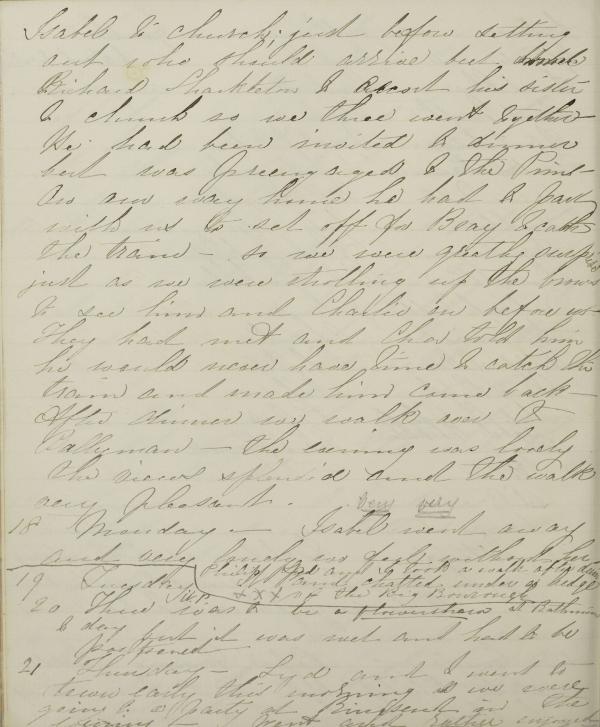 Isabel & church; just before setting
out who should arrive but
Richard Shackleton to escort his sister
to church so we three went together
He had been invited to dinner
but was preengaged to the Pims -
On our way home he had to part
with us to set off for Bray to catch
the train - so we were greatly surprised
just as we were strolling up the brows
to see him and Charlie on before us -
They had met and Char told him
he would never have time to catch the
train and made him come back -
After dinner we walk over to
Ballyman - the evening was lovely
the views splendid and the walk
very pleasant. very very
18 Monday - Isabel went away
and very lonely we feel without her
Philip and I took a walk after dinner
and chatted under a hedge
19 Tuesday
xxx of the Big
20 There was to be a flowershow at
to day but it was wet and had to be
postponed
21 Thursday - Lyd and I went to
town early this morning as we were
going to a party at in the
evening I went and